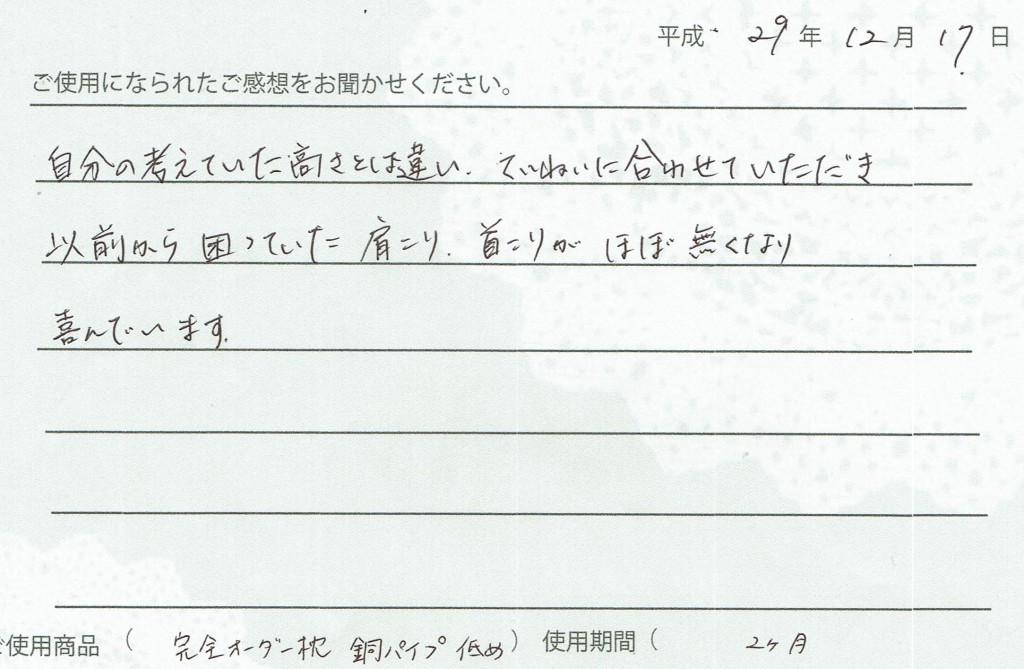 平成 29 年 12 月 17 日
ご使用になられたご感想をお聞かせください。
自分の考えていた高さとは違い、ていねいに合わせていただき
以前から困っていた肩こり、首こりがほぼ無くなり
喜んでいます。
ご使用商品 ( 完全オーダー枕 銅パイプ 低め ) 使用期間 ( 2ヶ月